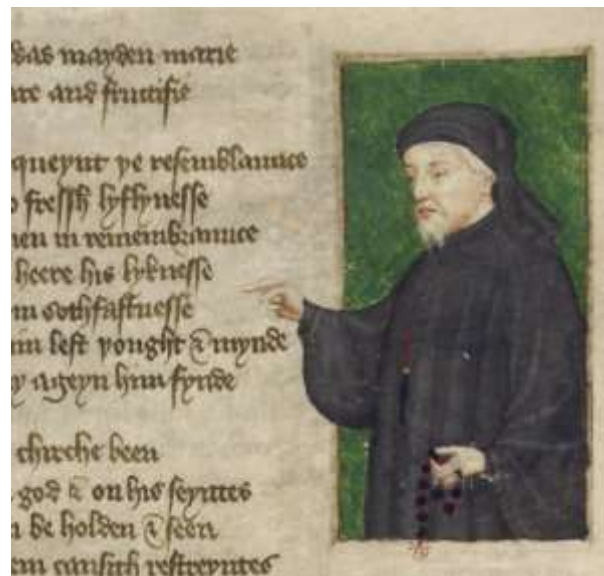 was mayden marie
and fructifie
queynt þe resemblaunce
fressh lyflynesse
in remembraunce
heere his lyknesse
in sothfastnesse
left þought & mynde
ageyn him fynde
chirche been
god & on his seyntes
be holden & seen
causith restreyntes